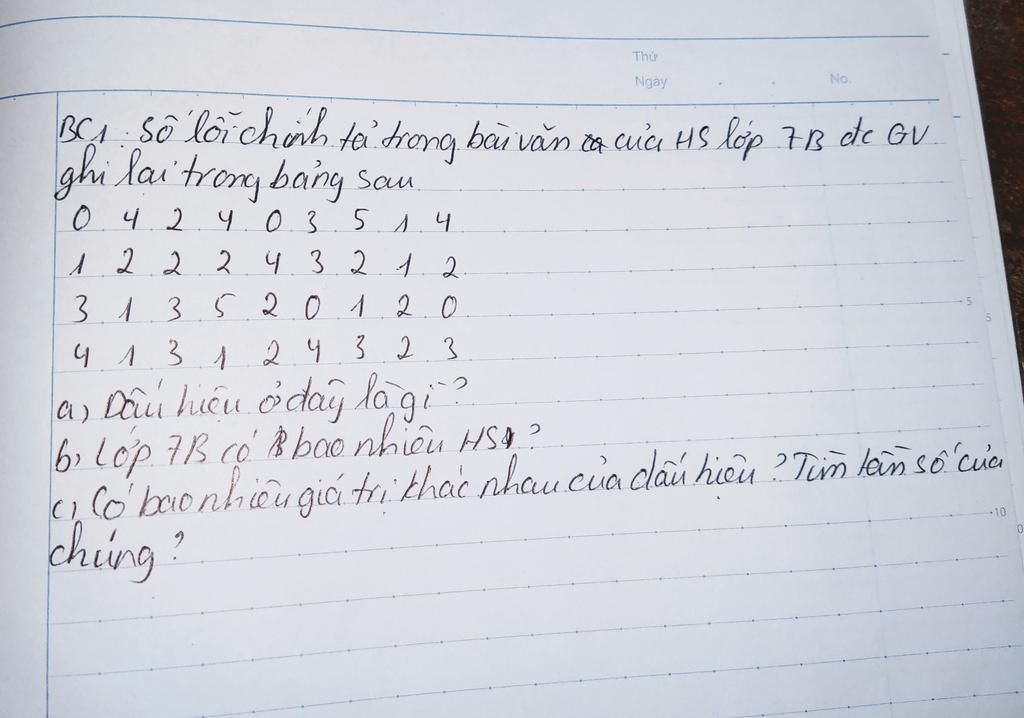 Thứ
Ngày . . No.
BC1. Số lỗi chính tả trong bài văn của HS lớp 7B đc GV
ghi lại trong bảng sau
0 4 2 4 0 3 5 1 4
1 2 2 2 4 3 2 1 2
3 1 3 5 2 0 1 2 0
4 1 3 1 2 4 3 2 3
a, Dấu hiệu ở đây là gì?
b, Lớp 7B có bao nhiêu HS?
c, Có bao nhiêu giá trị khác nhau của dấu hiệu? Tìm tần số của
chúng?
5
5
10